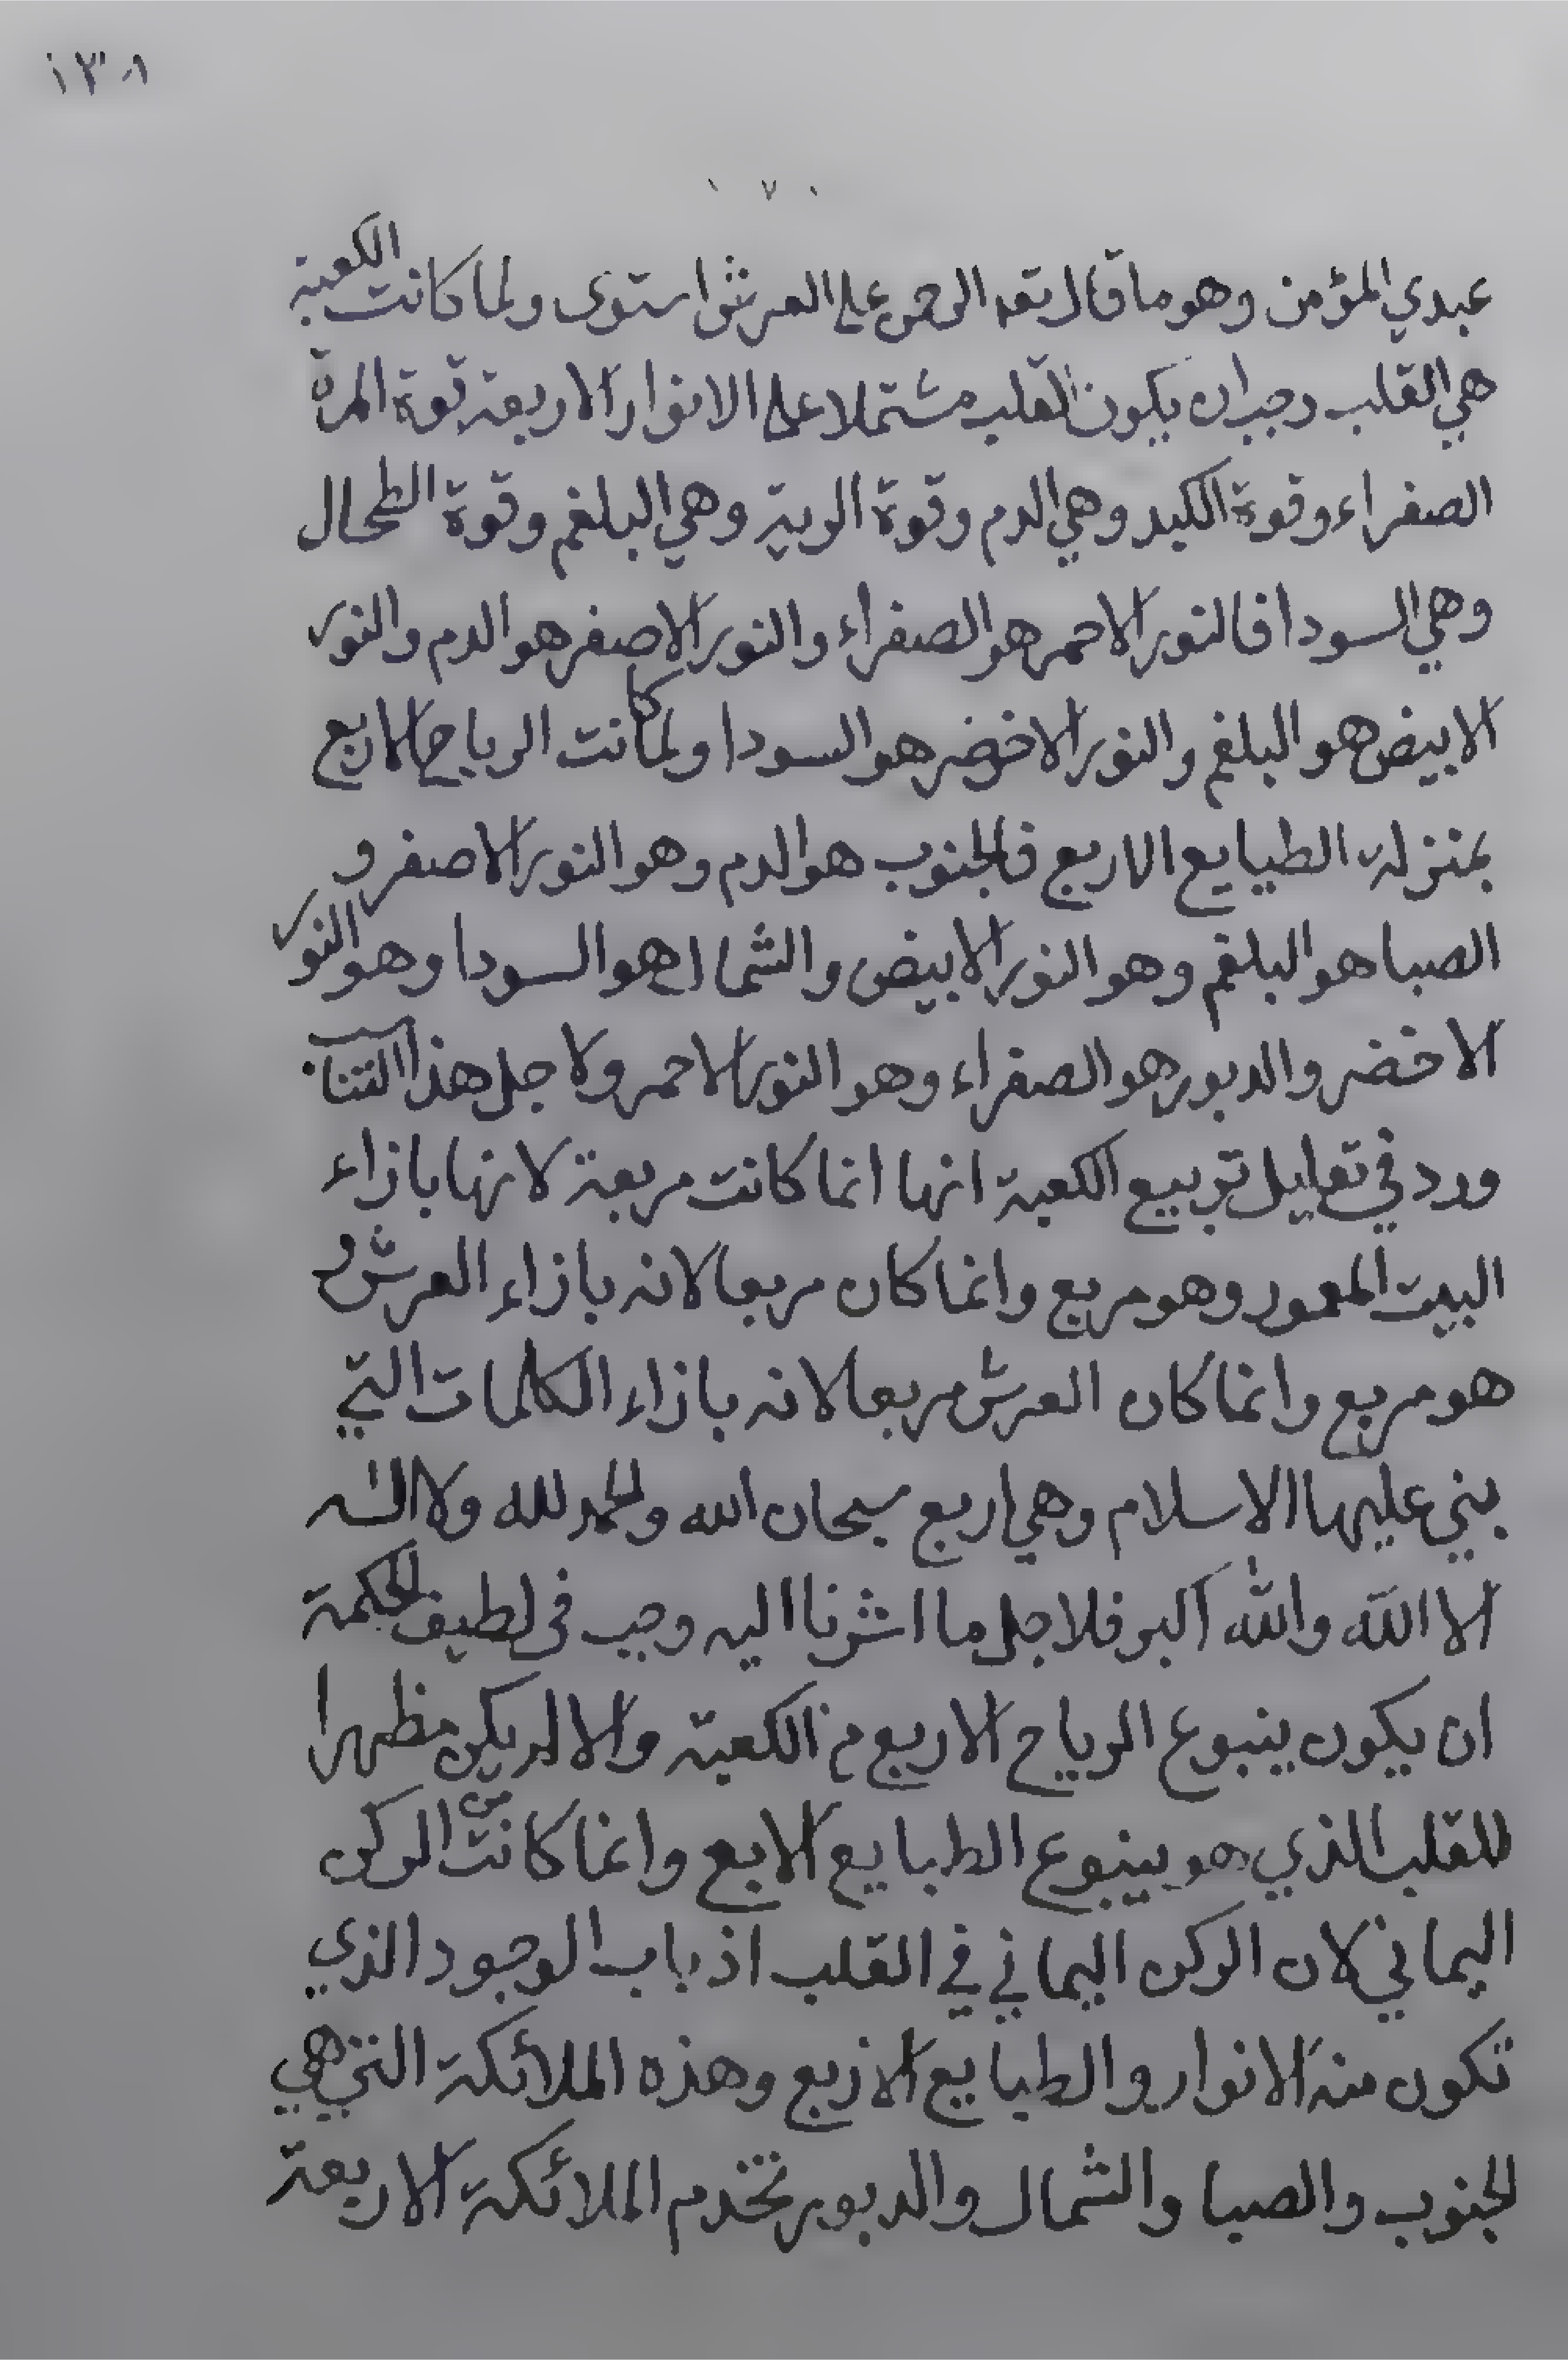 ١٣٨
عبدي المؤمن وهو ما قال تعه الرحمن على العرش استوى ولما كانت الكعبة
هي القلب وجب ان يكون القلب مشتملا على الانوار الاربعة قوة المرة
الصفراء وقوة الكبد وهي الدم وقوة الرية وهي البلغم وقوة الطحال
وهي السودا فالنور الاحمر هو الصفراء والنور الاصفر هو الدم والنور
الابيض هو البلغم والنور الاخضر هو السودا ولما كانت الرياح الاربع
بمنزلة الطبايع الاربع فالجنوب هو الدم وهو النور الاصفر و
الصبا هو البلغم وهو النور الابيض والشمال هو السودا وهو النور
الاخضر والدبور هو الصفراء وهو النور الاحمر ولاجل هذا التناسب
ورد في تعليل تربيع الكعبة انها انما كانت مربعة لانها بازاء
البيت المعمور وهو مربع وانما كان مربعا لانه بازاء العرش و
هو مربع وانما كان العرش مربعا لانه بازاء الكلمات التي
بني عليها الاسلام وهي اربع سبحان الله والحمد لله ولا اله
الا الله والله اكبر فلاجل ما اشرنا اليه وجب فى لطيف الحكمة
ان يكون ينبوع الرياح الاربع من الكعبة والا لم يكن مظهرا
للقلب الذي هو ينبوع الطبايع الابع وانما كانت من الركن
اليماني لان الركن اليماني في القلب اذ باب الوجود الذي
تكون منه الانوار والطبايع الاربع وهذه الملائكة التي هي
الجنوب والصبا والشمال والدبور تخدم الملائكة الاربعة